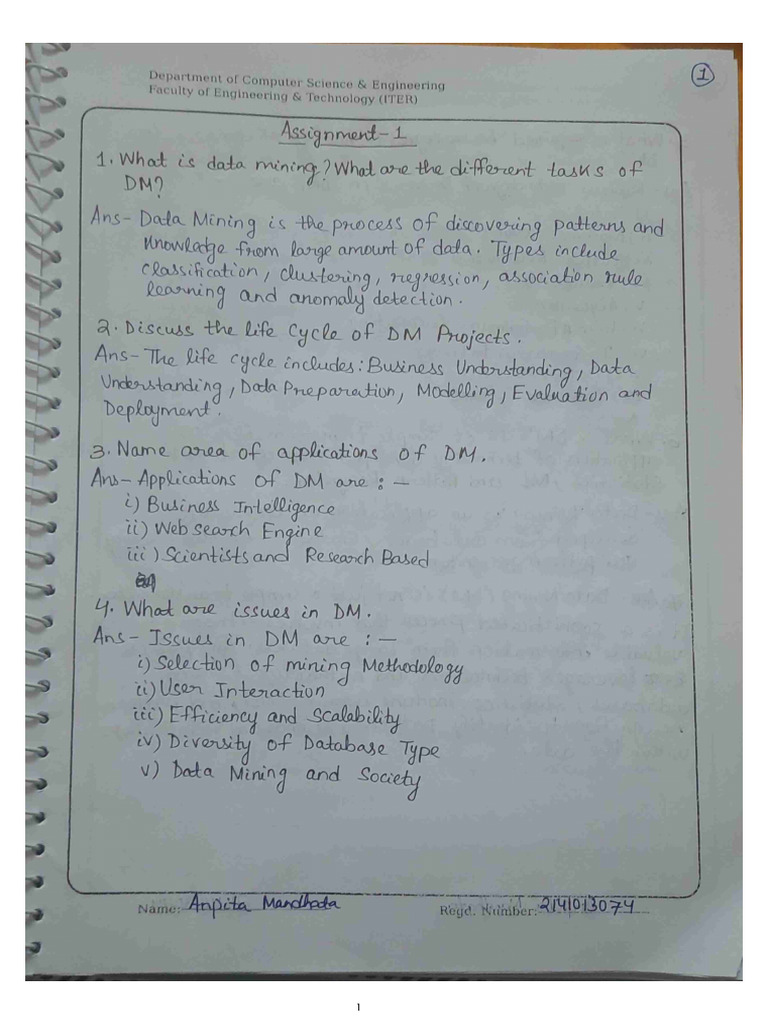 Department of Computer Science & Engineering
Faculty of Engineering & Technology (ITER)
1
Assignment-1
1. What is data mining? What are the different tasks of
DM?
Ans- Data Mining is the process of discovering patterns and
knowledge from large amount of data. Types include
classification, clustering, regression, association rule
learning and anomaly detection.
2. Discuss the life Cycle of DM Projects.
Ans- The life cycle includes: Business Understanding, Data
Understanding, Data Preparation, Modelling, Evaluation and
Deployment.
3. Name area of applications of DM.
Ans- Applications of DM are : -
i) Business Intelligence
ii) Web search Engine
iii) Scientists and Research Based
4. What are issues in DM.
Ans- Issues in DM are : -
i) Selection of mining Methodology
ii) User Interaction
iii) Efficiency and Scalability
iv) Diversity of Database Type
v) Data Mining and Society
Name: Arpita Mandhata
Regd. Number: 2141013074
1